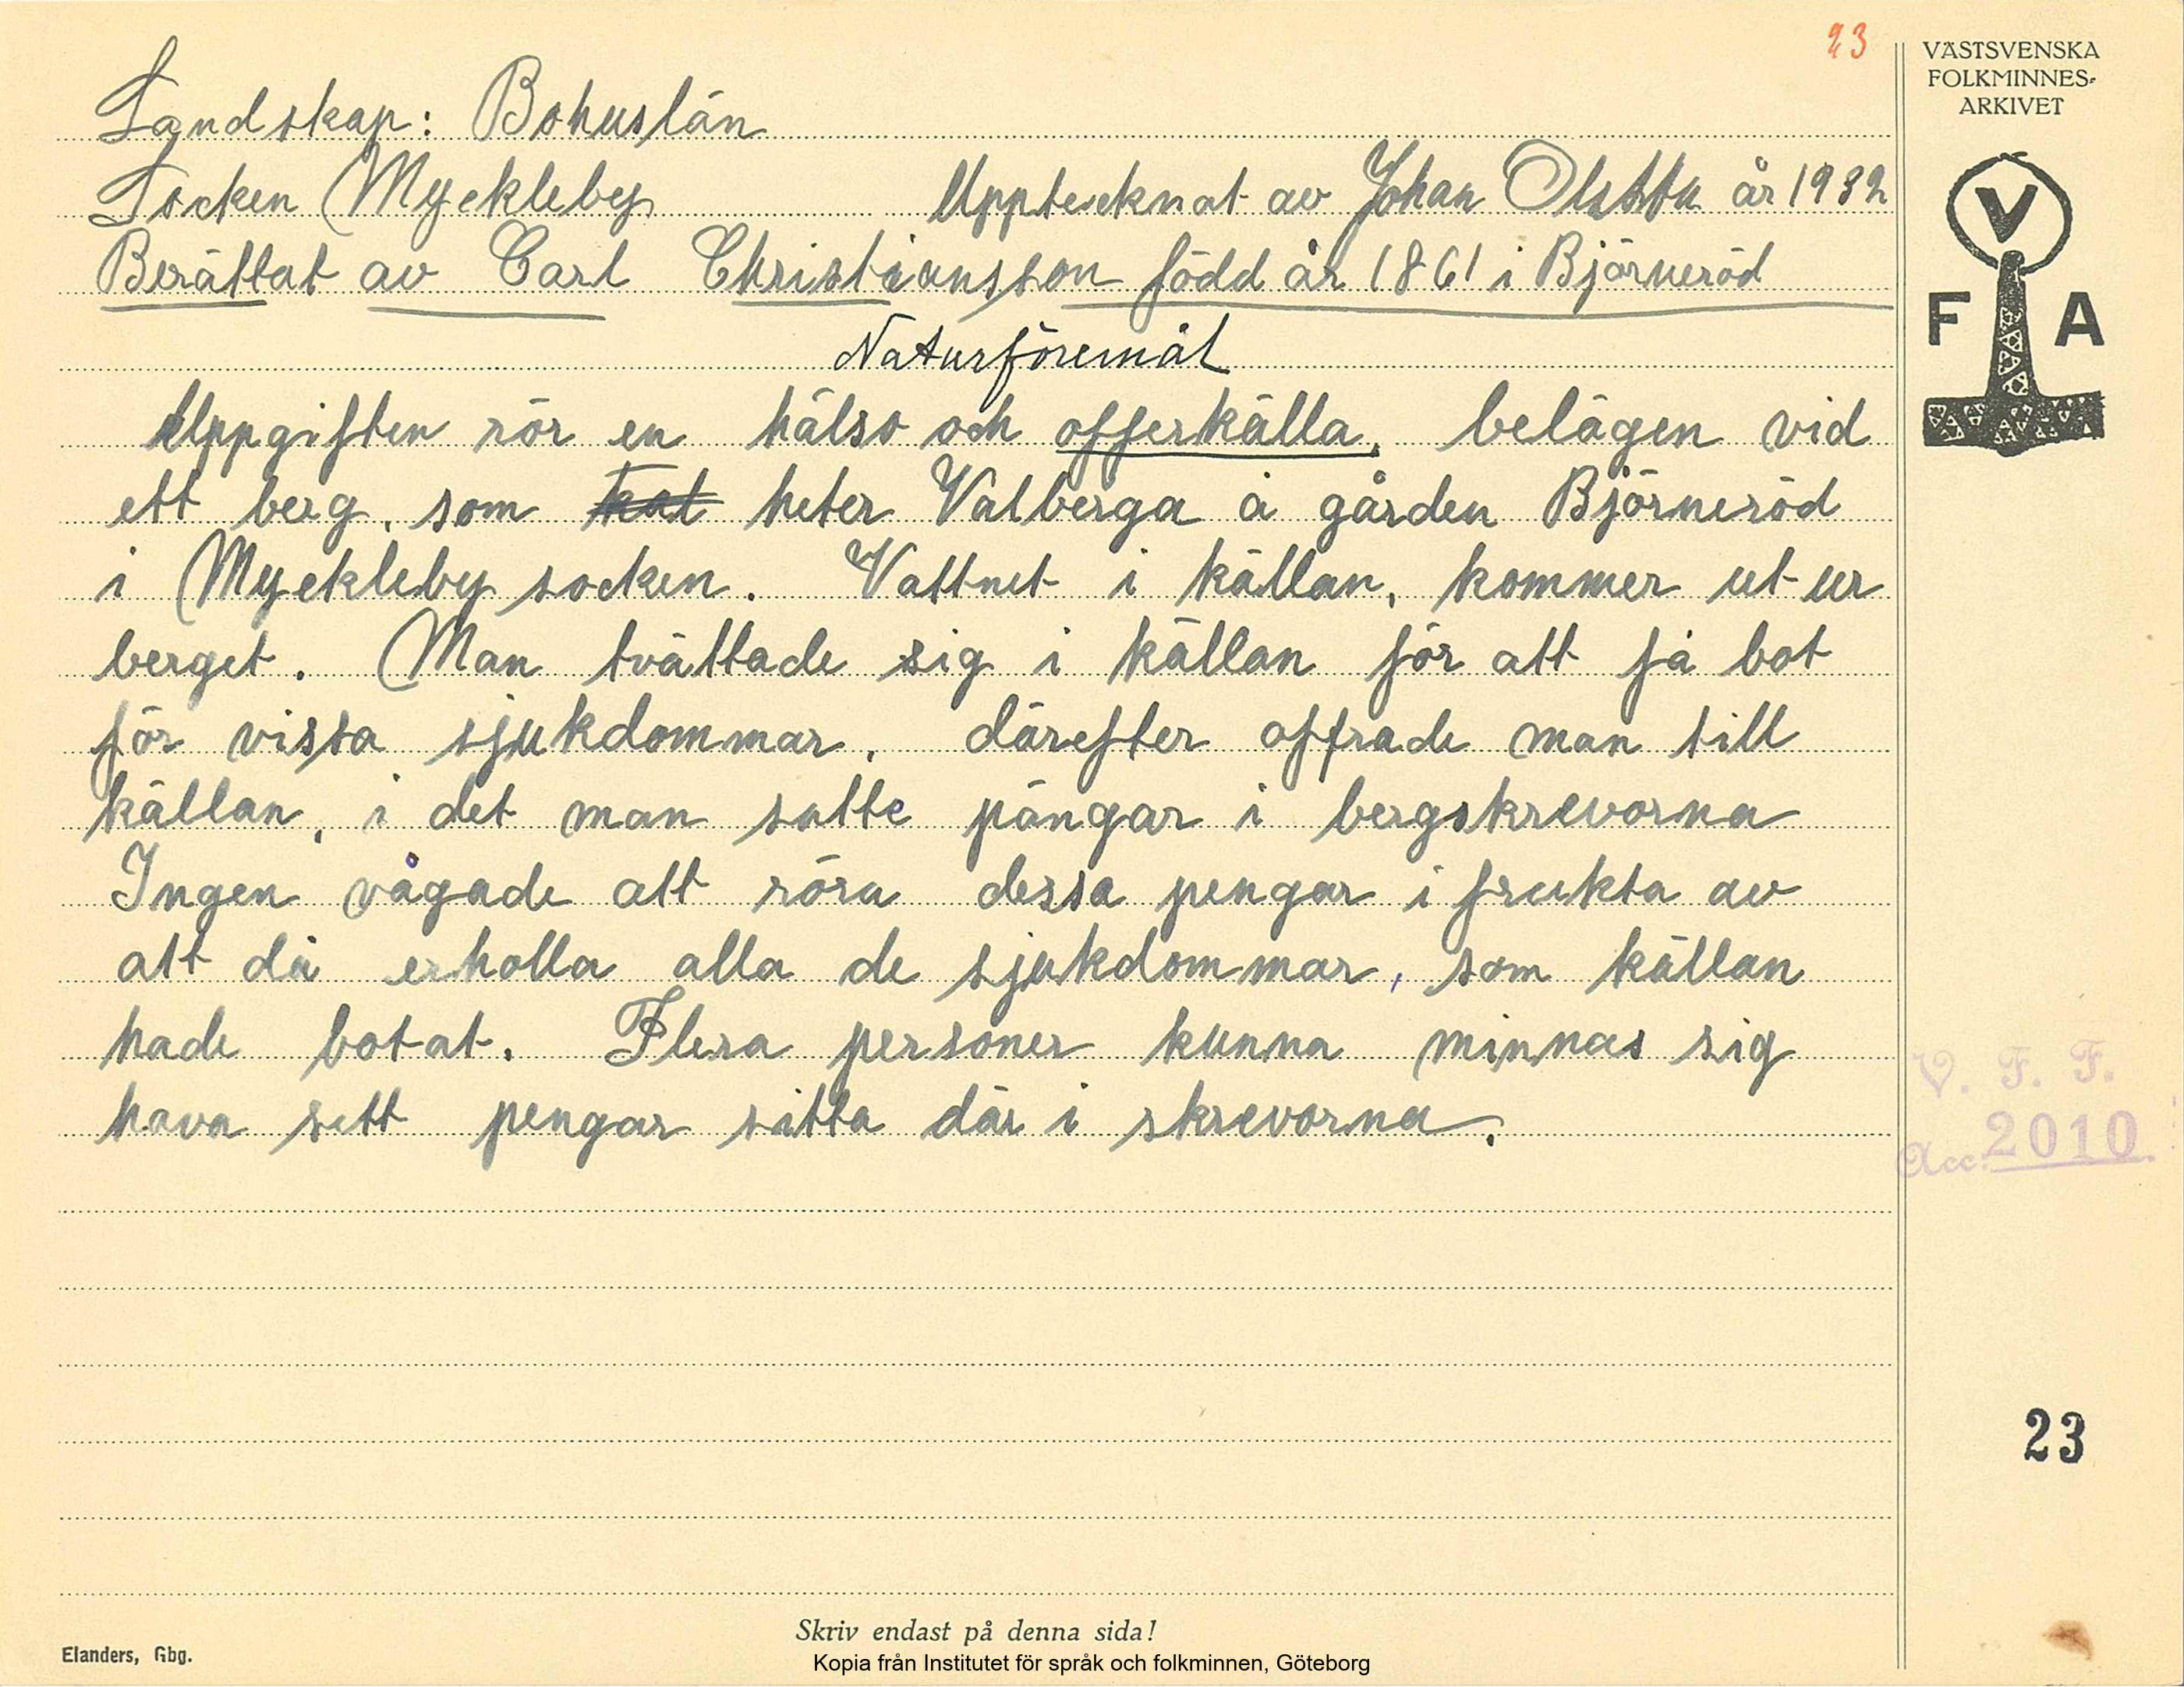 23
VÄSTSVENSKA
FOLKMINNES-
ARKIVET
V
F A
Landskap: Bohuslän
Socken Myckleby Upptecknat av Johan år 1932
Berättat av Carl Christiansson född år 1861 i Björneröd
Naturföremål
Uppgiften rör en hälso och offerkälla, belägen vid
ett berg, som heter Valberga å gården Björneröd
i Myckleby socken. Vattnet i källan, kommer ut ur
berget. Man tvättade sig i källan för att få bot
för vissa sjukdommar, därefter offrade man till
källan, i det man satte pängar i bergskrevorna
Ingen vågade att röra dessa pengar i frukta av
att då erholla alla de sjukdommar, som källan
hade botat. Flera personer kunna minnas sig
hava sett pengar sitta där i skrevorna.
V. F. F.
Acc. 2010
23
Skriv endast på denna sida!
Elanders, Gbg.
Kopia från Institutet för språk och folkminnen, Göteborg